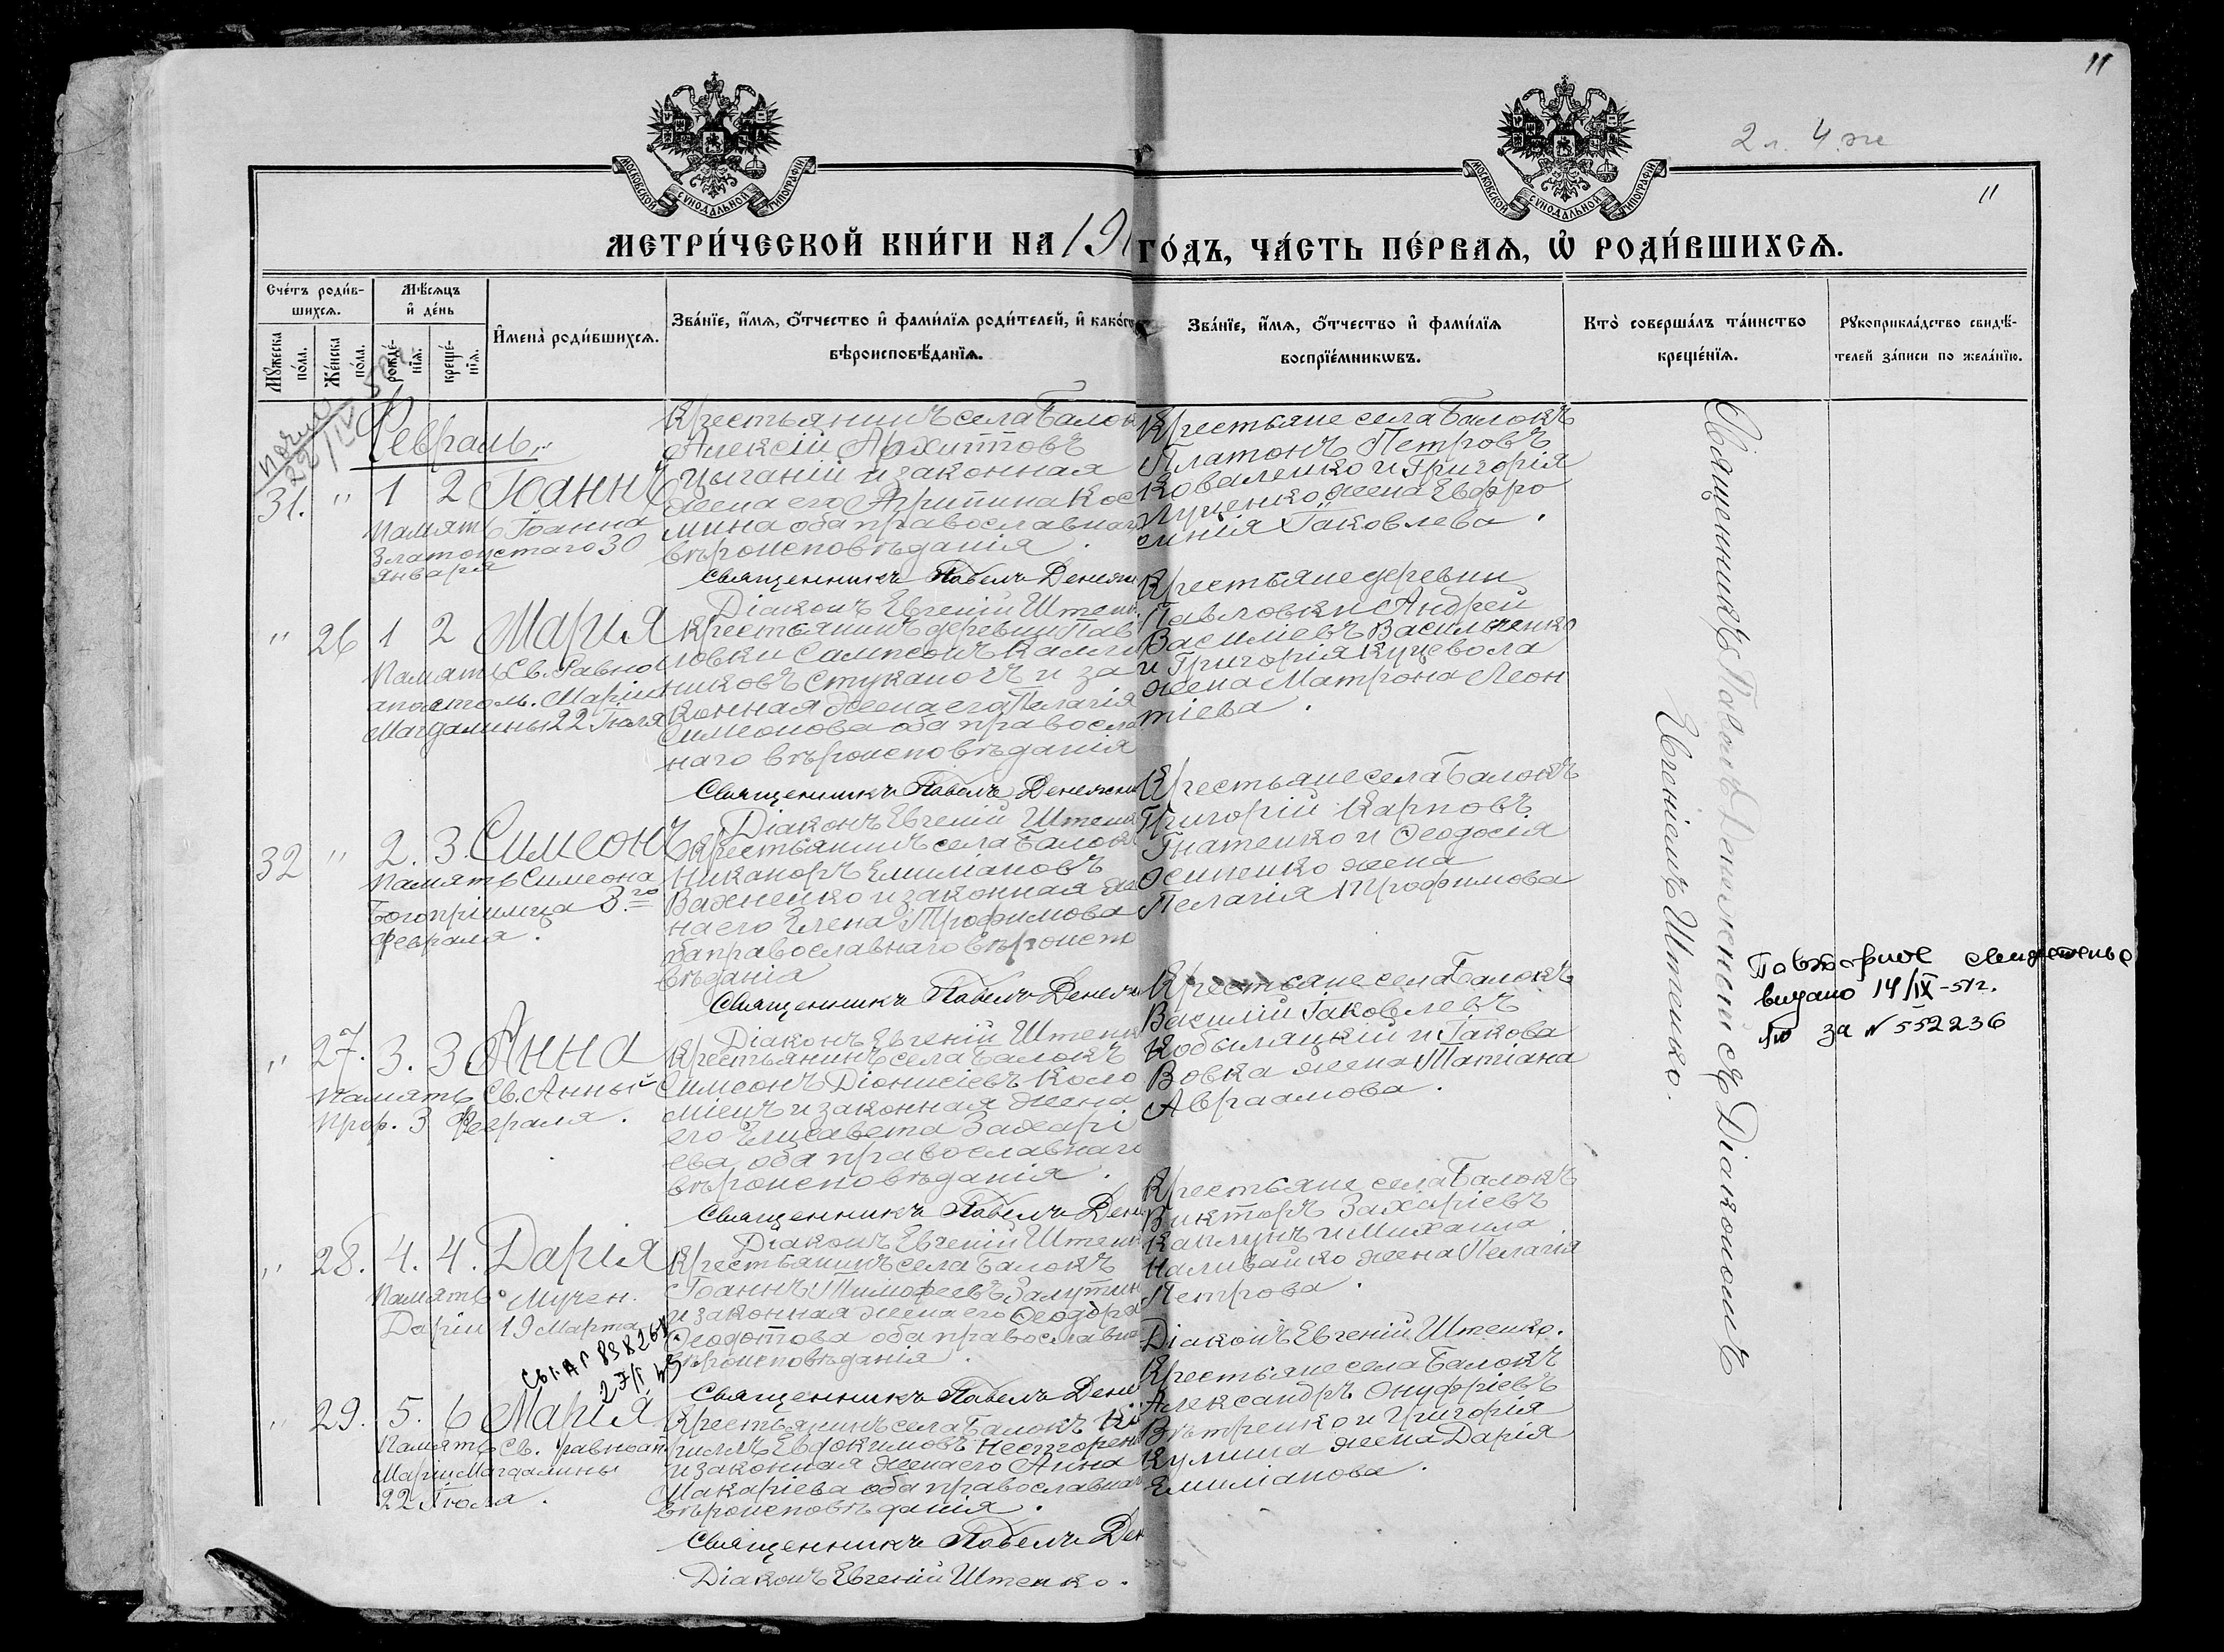 11
2 л. 4 ж
11
МОСКОВСКОЙ СѴНОДАЛЬНОЙ ТИПОГРАФІИ
МОСКОВСКОЙ СѴНОДАЛЬНОЙ ТИПОГРАФІИ
МЕТРИ́ЧЕСКОЙ КНИ́ГИ НА 191
ГО́ДЪ, ЧА́СТЬ ПЕ́РВАѦ, Ѡ҆ РОДИ́ВШИХСѦ.
Сче́тъ роди́в-
шихсѧ.
Мꙋ́жеска
по́ла.
Же́нска
по́ла.
Мѣ́сѧцъ
и҆ де́нь
рожде́-
нїѧ.
креще́-
нїѧ.
И҆мена̀ роди́вшихсѧ.
Зва́нїе, и҆́мѧ, ѻ҆́тчество и҆ фами́лїѧ роди́телей, и҆ како́гѡ
вѣроисповѣ́данїѧ.
Зва́нїе, и҆́мѧ, ѻ҆́тчество и҆ фами́лїѧ
воспрїе́мникѡвъ.
Кто̀ соверша́лъ та́инство
креще́нїѧ.
Рꙋкоприкла́дство свидѣ́-
телей за́писи по жела́нїю.
Февраль
31. " 1 2 Іоаннъ
Память Іоанна
Златоустаго 30
Января
Крестьянинъ села Балок
Алексій Архиппов
Цыганій и законная
жена его Агрипина Кос
мина оба православнаго
вѣроисповѣданія.
Священникъ Павелъ Денежн
Діаконъ Евгеній Штенк
Крестьяне села Балокъ
Платонъ Петровъ
Коваленко и Григорія
Луценко жена Евфро
синія Іаковлева.
" 26 1 2 Марія
Память Св. Равно
апостоль. Маріи
Магдалины 22 Іюля
Крестьянинъ деревни Пав
ловки Сампсонъ Калли
никовъ Стуканогъ и за
конная жена его Пелагія
Симеонова оба правосла
наго вѣроисповѣданія
Священникъ Павелъ Денежни
Діаконъ Евгеній Штенк
Крестьяне деревни
Павловки Андрей
Василіевъ Васильченко
и Григорія Куцевола
жена Матрона Леон
тіева.
32 " 2. 3. Симеонъ
Память Симеона
Богопріимца 3.го
Февраля.
Крестьянинъ села Балокъ
Никаноръ Емиліановъ
Вахненко и законная же
на его Елена Трофимова
оба православнаго вѣроиспо
вѣданія
Священникъ Павелъ Денеж
Діаконъ Евгеній Штенк
Крестьяне села Балокъ
Григорій Карповъ
Гнатенко и Ѳеодосія
Осипенко жена
Пелагія Трофимова
" 27. 3. 3 Анна
Память Св. Анны
Прор. 3 Февраля.
Крестьянинъ села Балокъ
Симеонъ Діонисіевъ Коло
міецъ и законная жена
его Елисавета Захарі
ева оба православнаго
вѣроисповѣданія.
Священникъ Павелъ Дене
Діаконъ Евгеній Штенк
Крестьяне села Балокъ
Василій Іаковлевъ
Кобыляцкій и Іакова
Вовка жена Татіана
Авраамова.
" 28. 4. 4. Дарія
Память Мучен.
Даріи 19 Марта
Крестьянинъ села Балокъ
Іоаннъ Тимофеевъ
и законная жена его Ѳеодора
Ѳеодотова оба православна
вѣроисповѣданія.
Священникъ Павелъ Дене
Крестьяне села Балокъ
Викторъ Захаріевъ
Каплунъ и Михаила
Наливайко жена Пелагія
Петрова.
Діаконъ Евгеній Штенко.
" 29. 5. 6 Марія
Память Св. равноап.
Маріи Магдалины
22 Іюля.
Крестьянинъ села Балокъ Ки
риллъ Евдокимовъ Несторен
и законная жена его Анна
Макаріева оба православнаг
вѣроисповѣданія.
Священникъ Павелъ Ден
Діаконъ Евгеній Штенко.
Крестьяне села Балокъ
Александръ Онуфріевъ
Вѣтренко и Григорія
жена Дарія
Емиліанова.
Священникъ Павелъ Денежный съ Діакономъ
Евгеніемъ Штенко.
Повторное
видано 14/IX-51г.
за № 552236